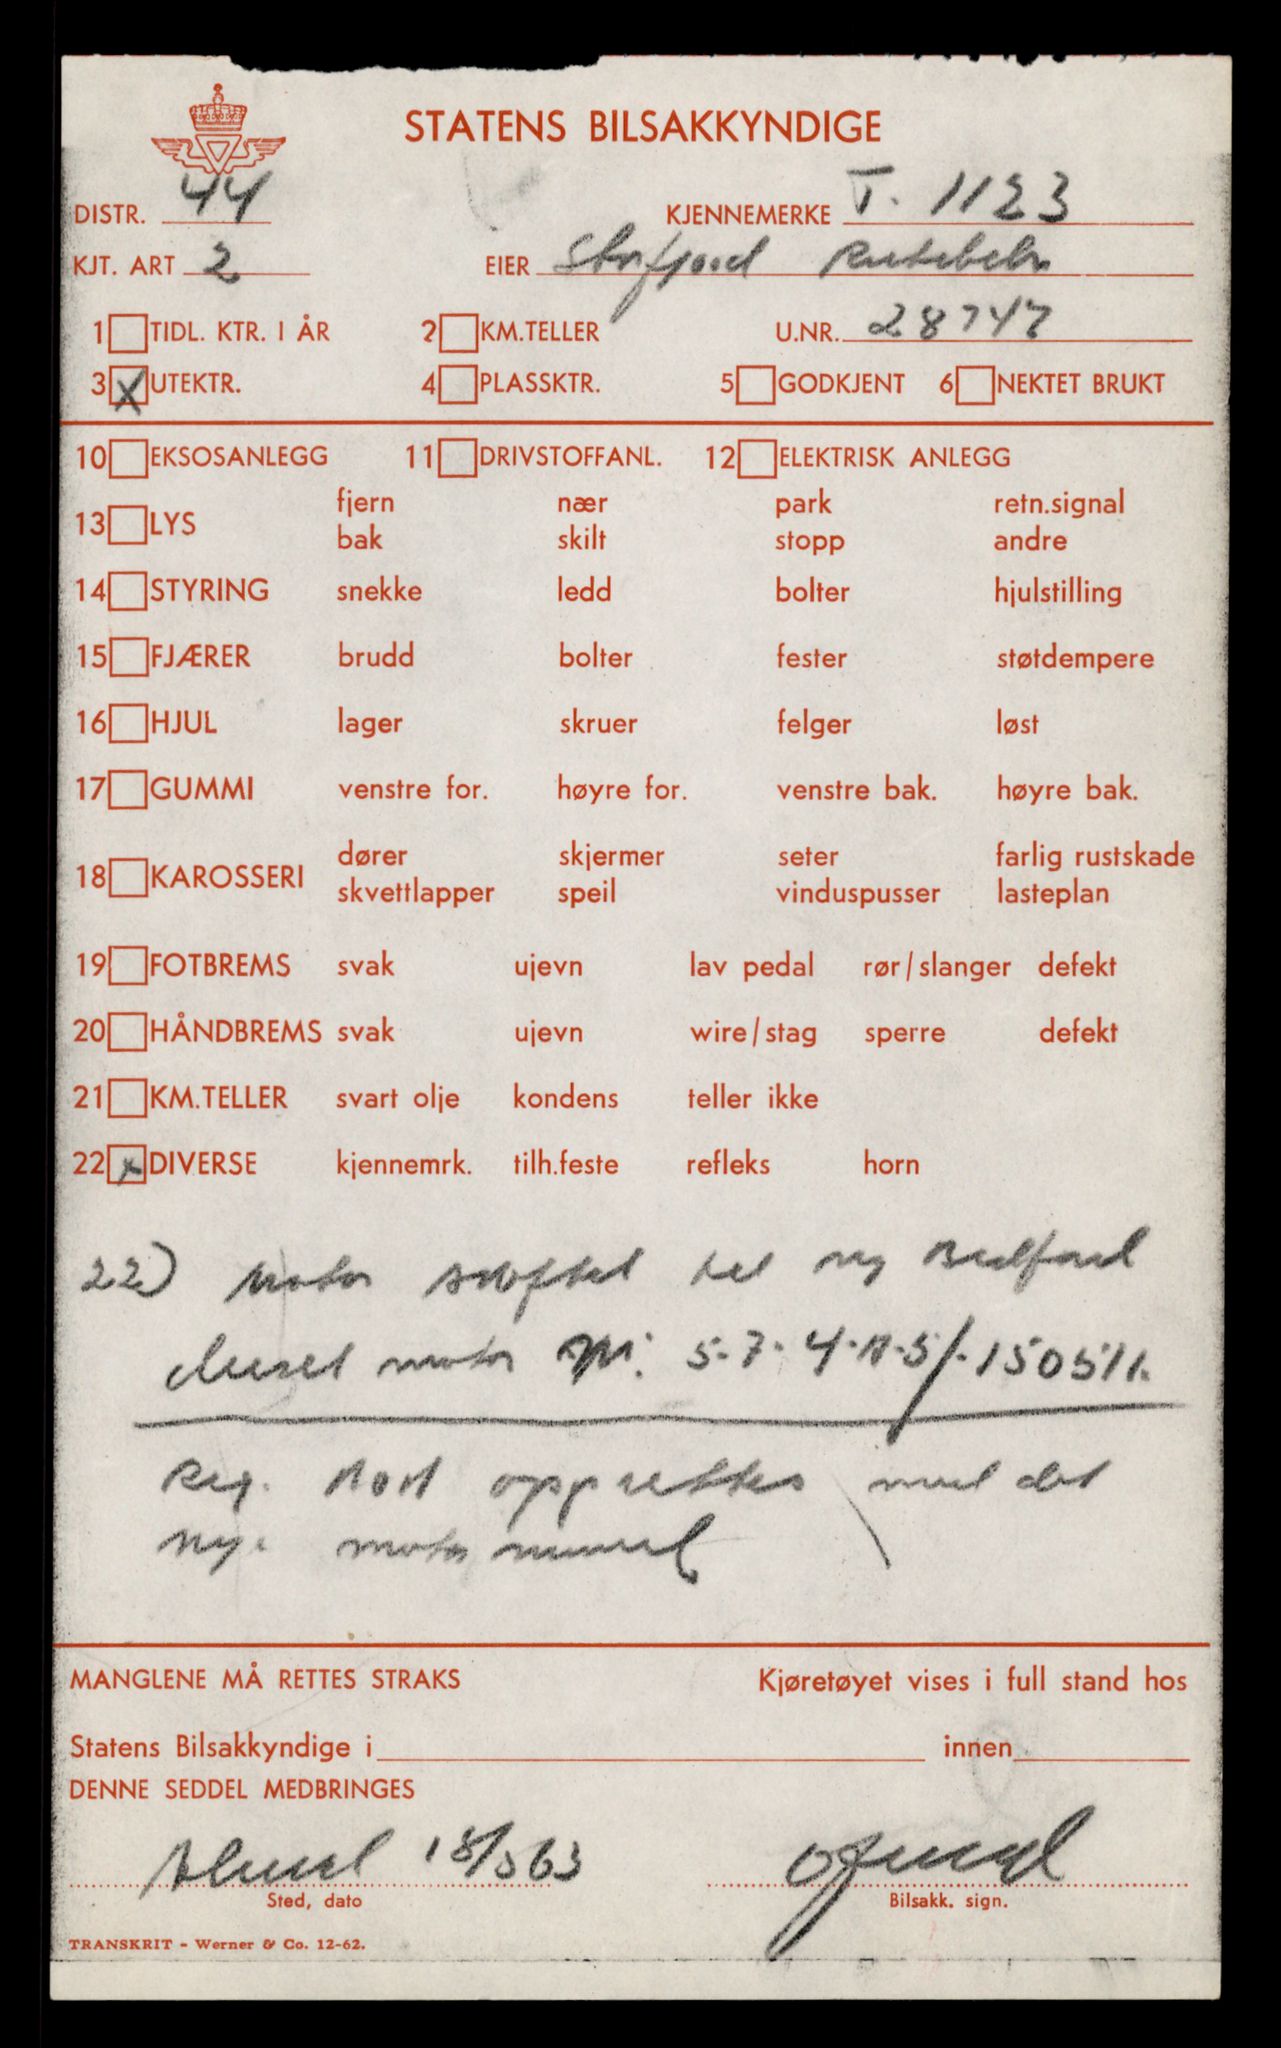 STATENS BILSAKKYNDIGE
DISTR. 44 KJENNEMERKE T. 1123
KJT. ART 2 EIER Storfjord Rutebeler
1 TIDL. KTR. I ÅR 2 KM.TELLER U.NR. 28747
3 X UTEKTR. 4 PLASSKTR. 5 GODKJENT 6 NEKTET BRUKT
10 EKSOSANLEGG 11 DRIVSTOFFANL. 12 ELEKTRISK ANLEGG
fjern nær park retn.signal
13 LYS
bak skilt stopp andre
14 STYRING snekke ledd bolter hjulstilling
15 FJÆRER brudd bolter fester støtdempere
16 HJUL lager skruer felger løst
17 GUMMI venstre for. høyre for. venstre bak. høyre bak.
dører skjermer seter farlig rustskade
18 KAROSSERI
skvettlapper speil vinduspusser lasteplan
19 FOTBREMS svak ujevn lav pedal rør/slanger defekt
20 HÅNDBREMS svak ujevn wire/stag sperre defekt
21 KM.TELLER svart olje kondens teller ikke
22 x DIVERSE kjennemrk. tilh.feste refleks horn
22) Motor skiftet til ny Bedford
diesel motor nr. 5-7-4-A-5/-150511.
Reg. kort opprettes med det
nye motor nummer
MANGLENE MÅ RETTES STRAKS Kjøretøyet vises i full stand hos
Statens Bilsakkyndige i innen
DENNE SEDDEL MEDBRINGES
Ålesund 18/5 63
Sted, dato Bilsakk. sign.
TRANSKRIT - Werner & Co. 12-62.